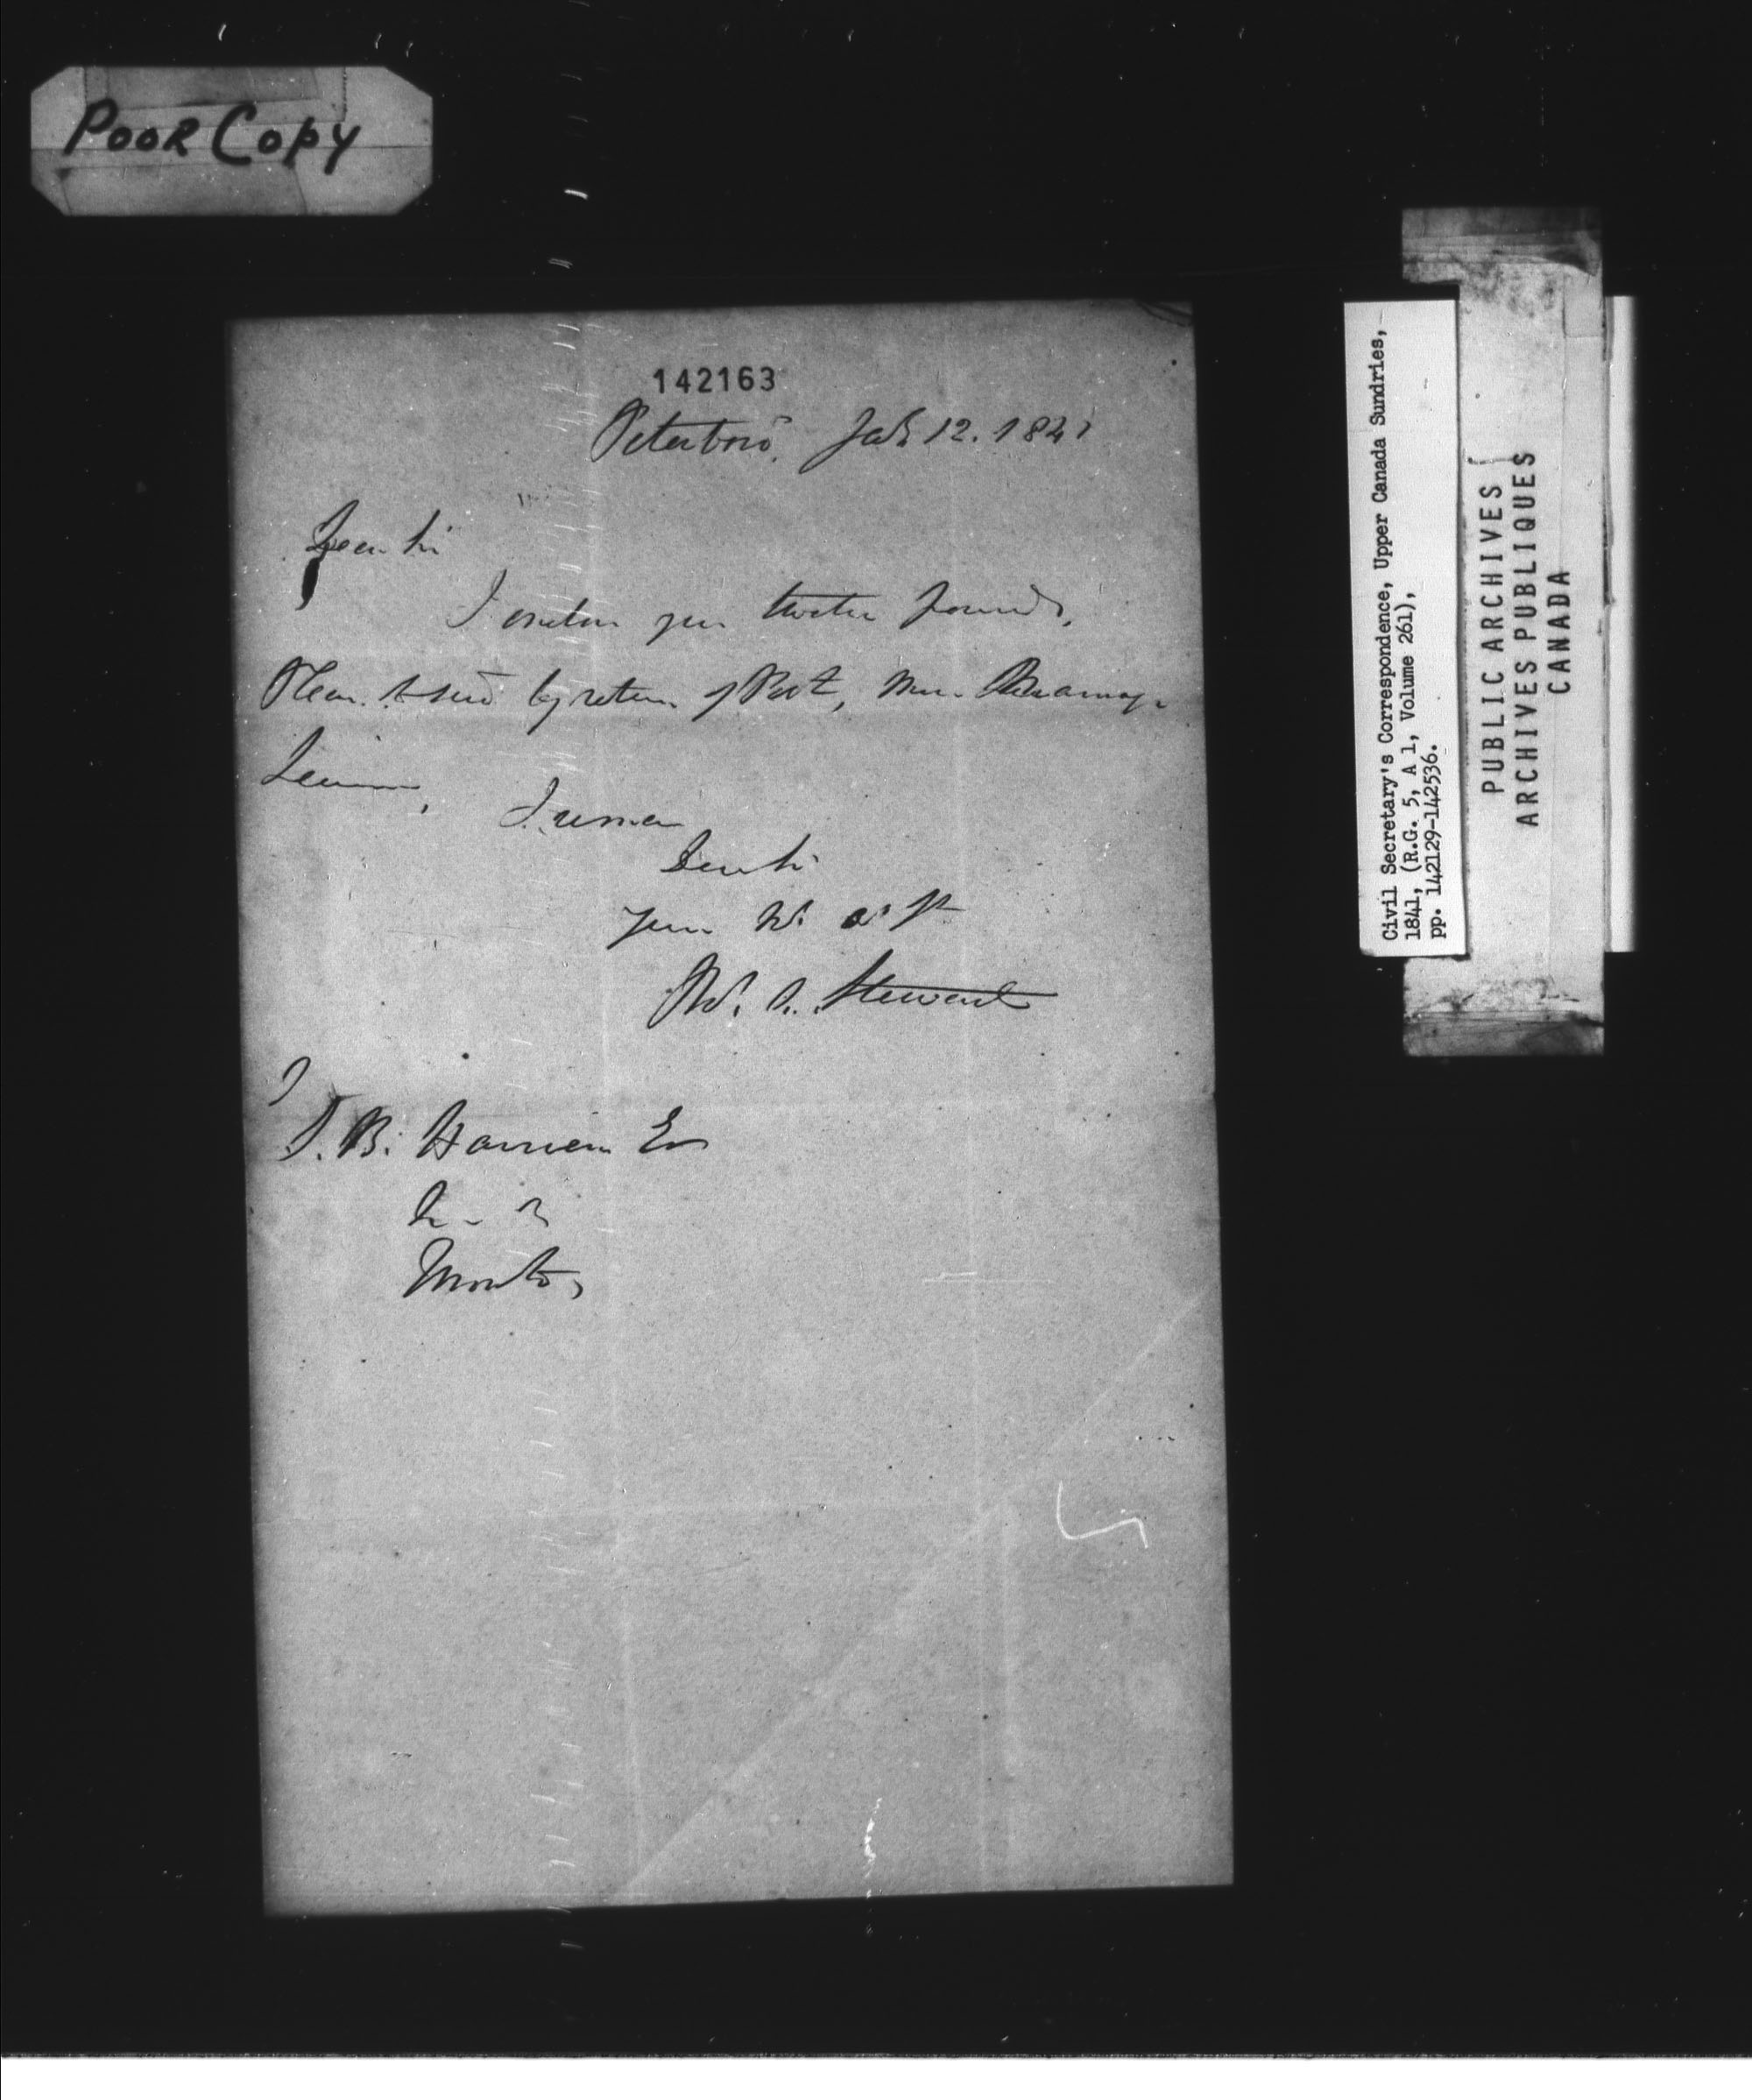 Poor Copy
142163
Peterboro, 12. 1841
Dear Sir
I enclose you twelve pounds.
Please to send by return of Post,
I remain
Dear Sir
W. S. Stewart
S. B. Harrison Esq
Toronto,
Civil Secretary's Correspondence, Upper Canada Sundries,
1841, (R.G. 5, A 1, Volume 261),
pp. 142129-142536.
PUBLIC ARCHIVES
ARCHIVES PUBLIQUES
CANADA